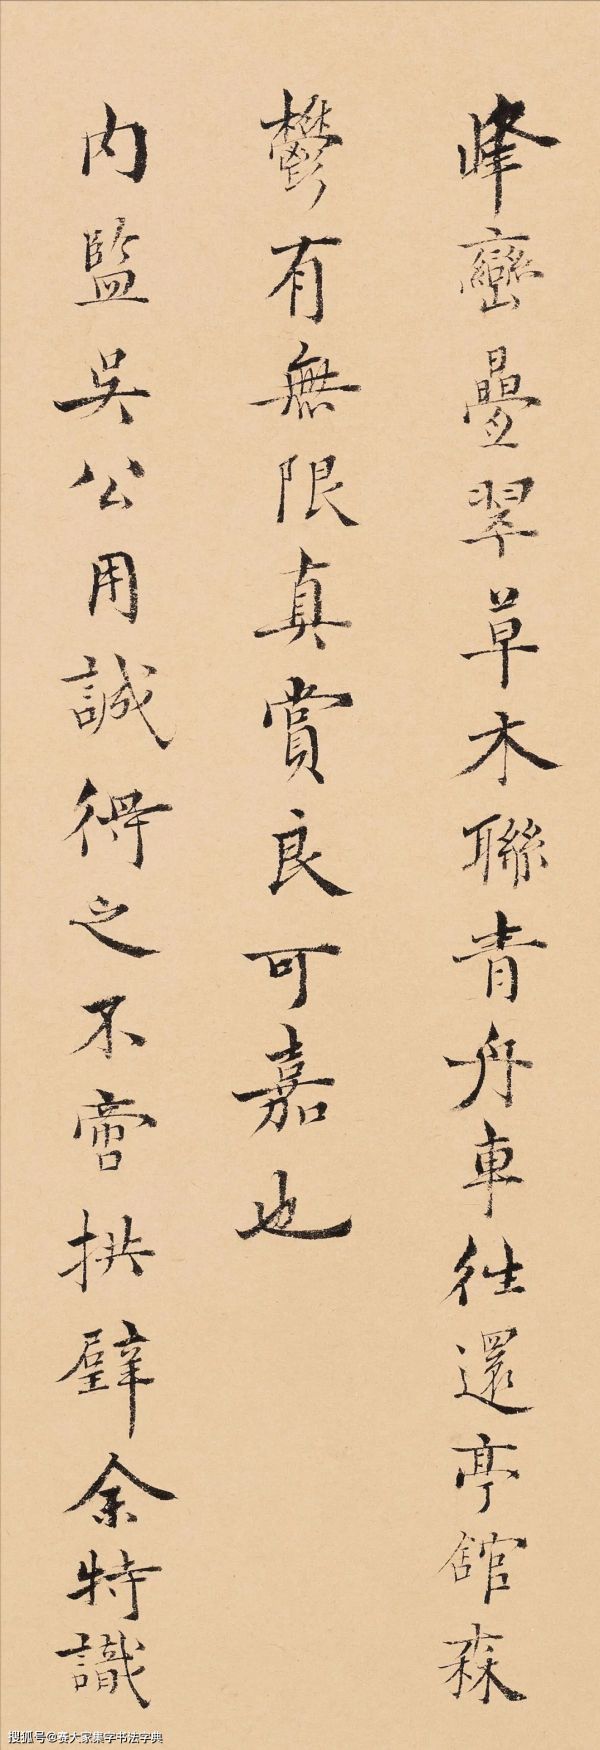 峰巒疊翠草木聯青舟車往還亭館森
鬱有無限真賞良可嘉也
内監吳公用誠得之不啻拱璧余特識
搜狐号@赛大家集字书法字典